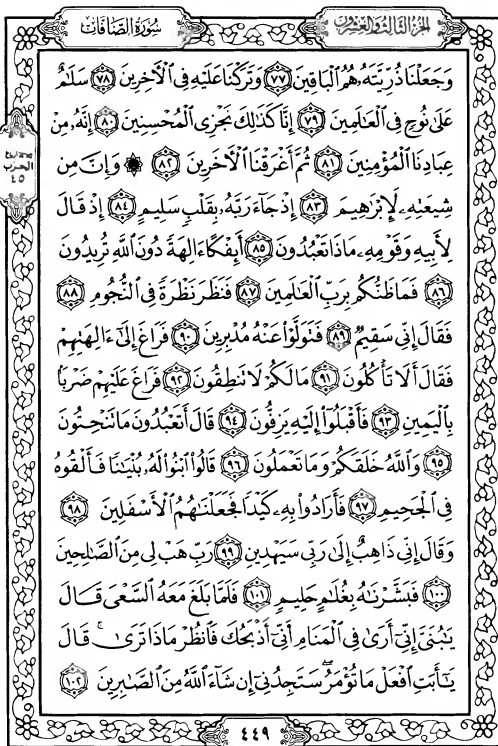 سُورَةُ الصَّافَّاتِ
الجُزْءُ الثَّالِثُ وَالعِشْرُونَ
وَجَعَلْنَا ذُرِّيَّتَهُۥ هُمُ ٱلْبَاقِينَ ٧٧ وَتَرَكْنَا عَلَيْهِ فِي ٱلْأَخِرِينَ ٧٨ سَلَٰمٌ
عَلَىٰ نُوحٍ فِي ٱلْعَٰلَمِينَ ٧٩ إِنَّا كَذَٰلِكَ نَجْزِي ٱلْمُحْسِنِينَ ٨٠ إِنَّهُۥ مِنْ
عِبَادِنَا ٱلْمُؤْمِنِينَ ٨١ ثُمَّ أَغْرَقْنَا ٱلْأَخَرِينَ ٨٢ ۞ وَإِنَّ مِن
شِيعَتِهِۦ لَإِبْرَٰهِيمَ ٨٣ إِذْ جَآءَ رَبَّهُۥ بِقَلْبٍ سَلِيمٍ ٨٤ إِذْ قَالَ
لِأَبِيهِ وَقَوْمِهِۦ مَاذَا تَعْبُدُونَ ٨٥ أَئِفْكًا ءَالِهَةً دُونَ ٱللَّهِ تُرِيدُونَ
٨٦ فَمَا ظَنُّكُم بِرَبِّ ٱلْعَٰلَمِينَ ٨٧ فَنَظَرَ نَظْرَةً فِي ٱلنُّجُومِ ٨٨
فَقَالَ إِنِّي سَقِيمٌ ٨٩ فَتَوَلَّوْا۟ عَنْهُ مُدْبِرِينَ ٩٠ فَرَاغَ إِلَىٰٓ ءَالِهَتِهِمْ
فَقَالَ أَلَا تَأْكُلُونَ ٩١ مَا لَكُمْ لَا تَنطِقُونَ ٩٢ فَرَاغَ عَلَيْهِمْ ضَرْبًۢا
بِٱلْيَمِينِ ٩٣ فَأَقْبَلُوٓا۟ إِلَيْهِ يَزِفُّونَ ٩٤ قَالَ أَتَعْبُدُونَ مَا تَنْحِتُونَ
٩٥ وَٱللَّهُ خَلَقَكُمْ وَمَا تَعْمَلُونَ ٩٦ قَالُوا۟ ٱبْنُوا۟ لَهُۥ بُنْيَٰنًا فَأَلْقُوهُ
فِي ٱلْجَحِيمِ ٩٧ فَأَرَادُوا۟ بِهِۦ كَيْدًا فَجَعَلْنَٰهُمُ ٱلْأَسْفَلِينَ ٩٨
وَقَالَ إِنِّي ذَاهِبٌ إِلَىٰ رَبِّي سَيَهْدِينِ ٩٩ رَبِّ هَبْ لِي مِنَ ٱلصَّٰلِحِينَ
١٠٠ فَبَشَّرْنَٰهُ بِغُلَٰمٍ حَلِيمٍ ١٠١ فَلَمَّا بَلَغَ مَعَهُ ٱلسَّعْيَ قَالَ
يَٰبُنَيَّ إِنِّيٓ أَرَىٰ فِي ٱلْمَنَامِ أَنِّيٓ أَذْبَحُكَ فَٱنظُرْ مَاذَا تَرَىٰ ۚ قَالَ
يَٰٓأَبَتِ ٱفْعَلْ مَا تُؤْمَرُ ۖ سَتَجِدُنِيٓ إِن شَآءَ ٱللَّهُ مِنَ ٱلصَّٰبِرِينَ ١٠٢
الحزب
٤٥
٤٤٩